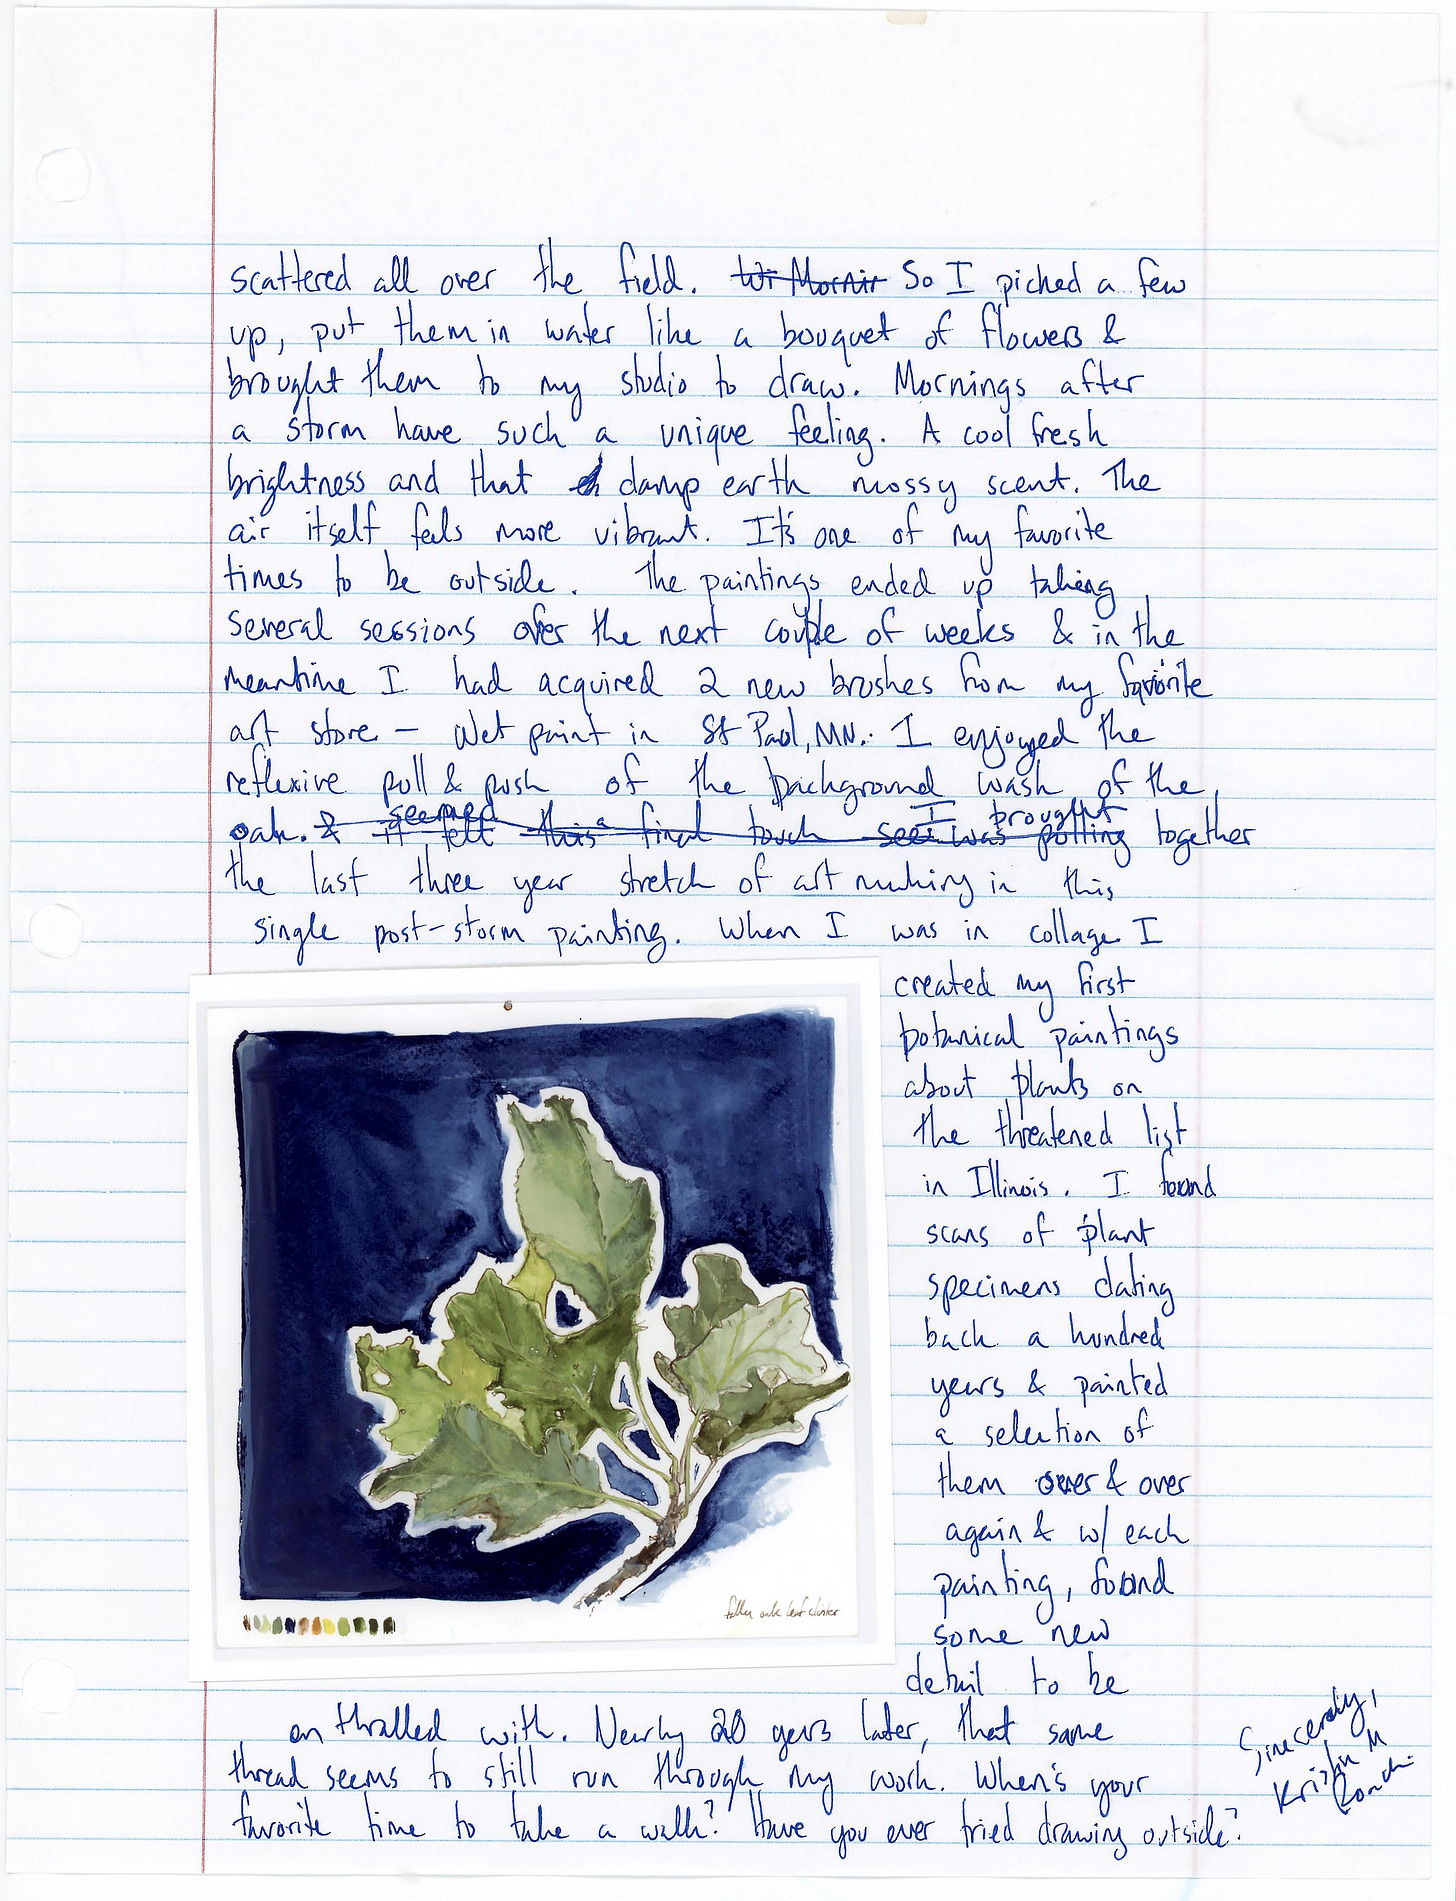 scattered all over the field. So I picked a few
up, put them in water like a bouquet of flowers &
brought them to my studio to draw. Mornings after
a storm have such a unique feeling. A cool fresh
brightness and that damp earth mossy scent. The
air itself feels more vibrant. It's one of my favorite
times to be outside. The paintings ended up taking
several sessions over the next couple of weeks & in the
meantime I had acquired 2 new brushes from my favorite
art store - Wet paint in St Paul, MN. I enjoyed the
reflexive pull & push of the background wash of the
seemed I brought
oak. & it felt this final touch was putting together
the last three year stretch of art making in this
single post-storm painting. When I was in collage I
created my first
botanical paintings
about plants on
the threatened list
in Illinois. I found
scans of plant
specimens dating
back a hundred
years & painted
a selection of
them over & over
again & w/ each
painting, found
some new
detail to be
enthralled with. Nearly 20 years later, that same
thread seems to still run through my work. When's your
favorite time to take a walk? Have you ever tried drawing outside?
Sincerely,
Kristin M
Roach
fallen oak leaf cluster